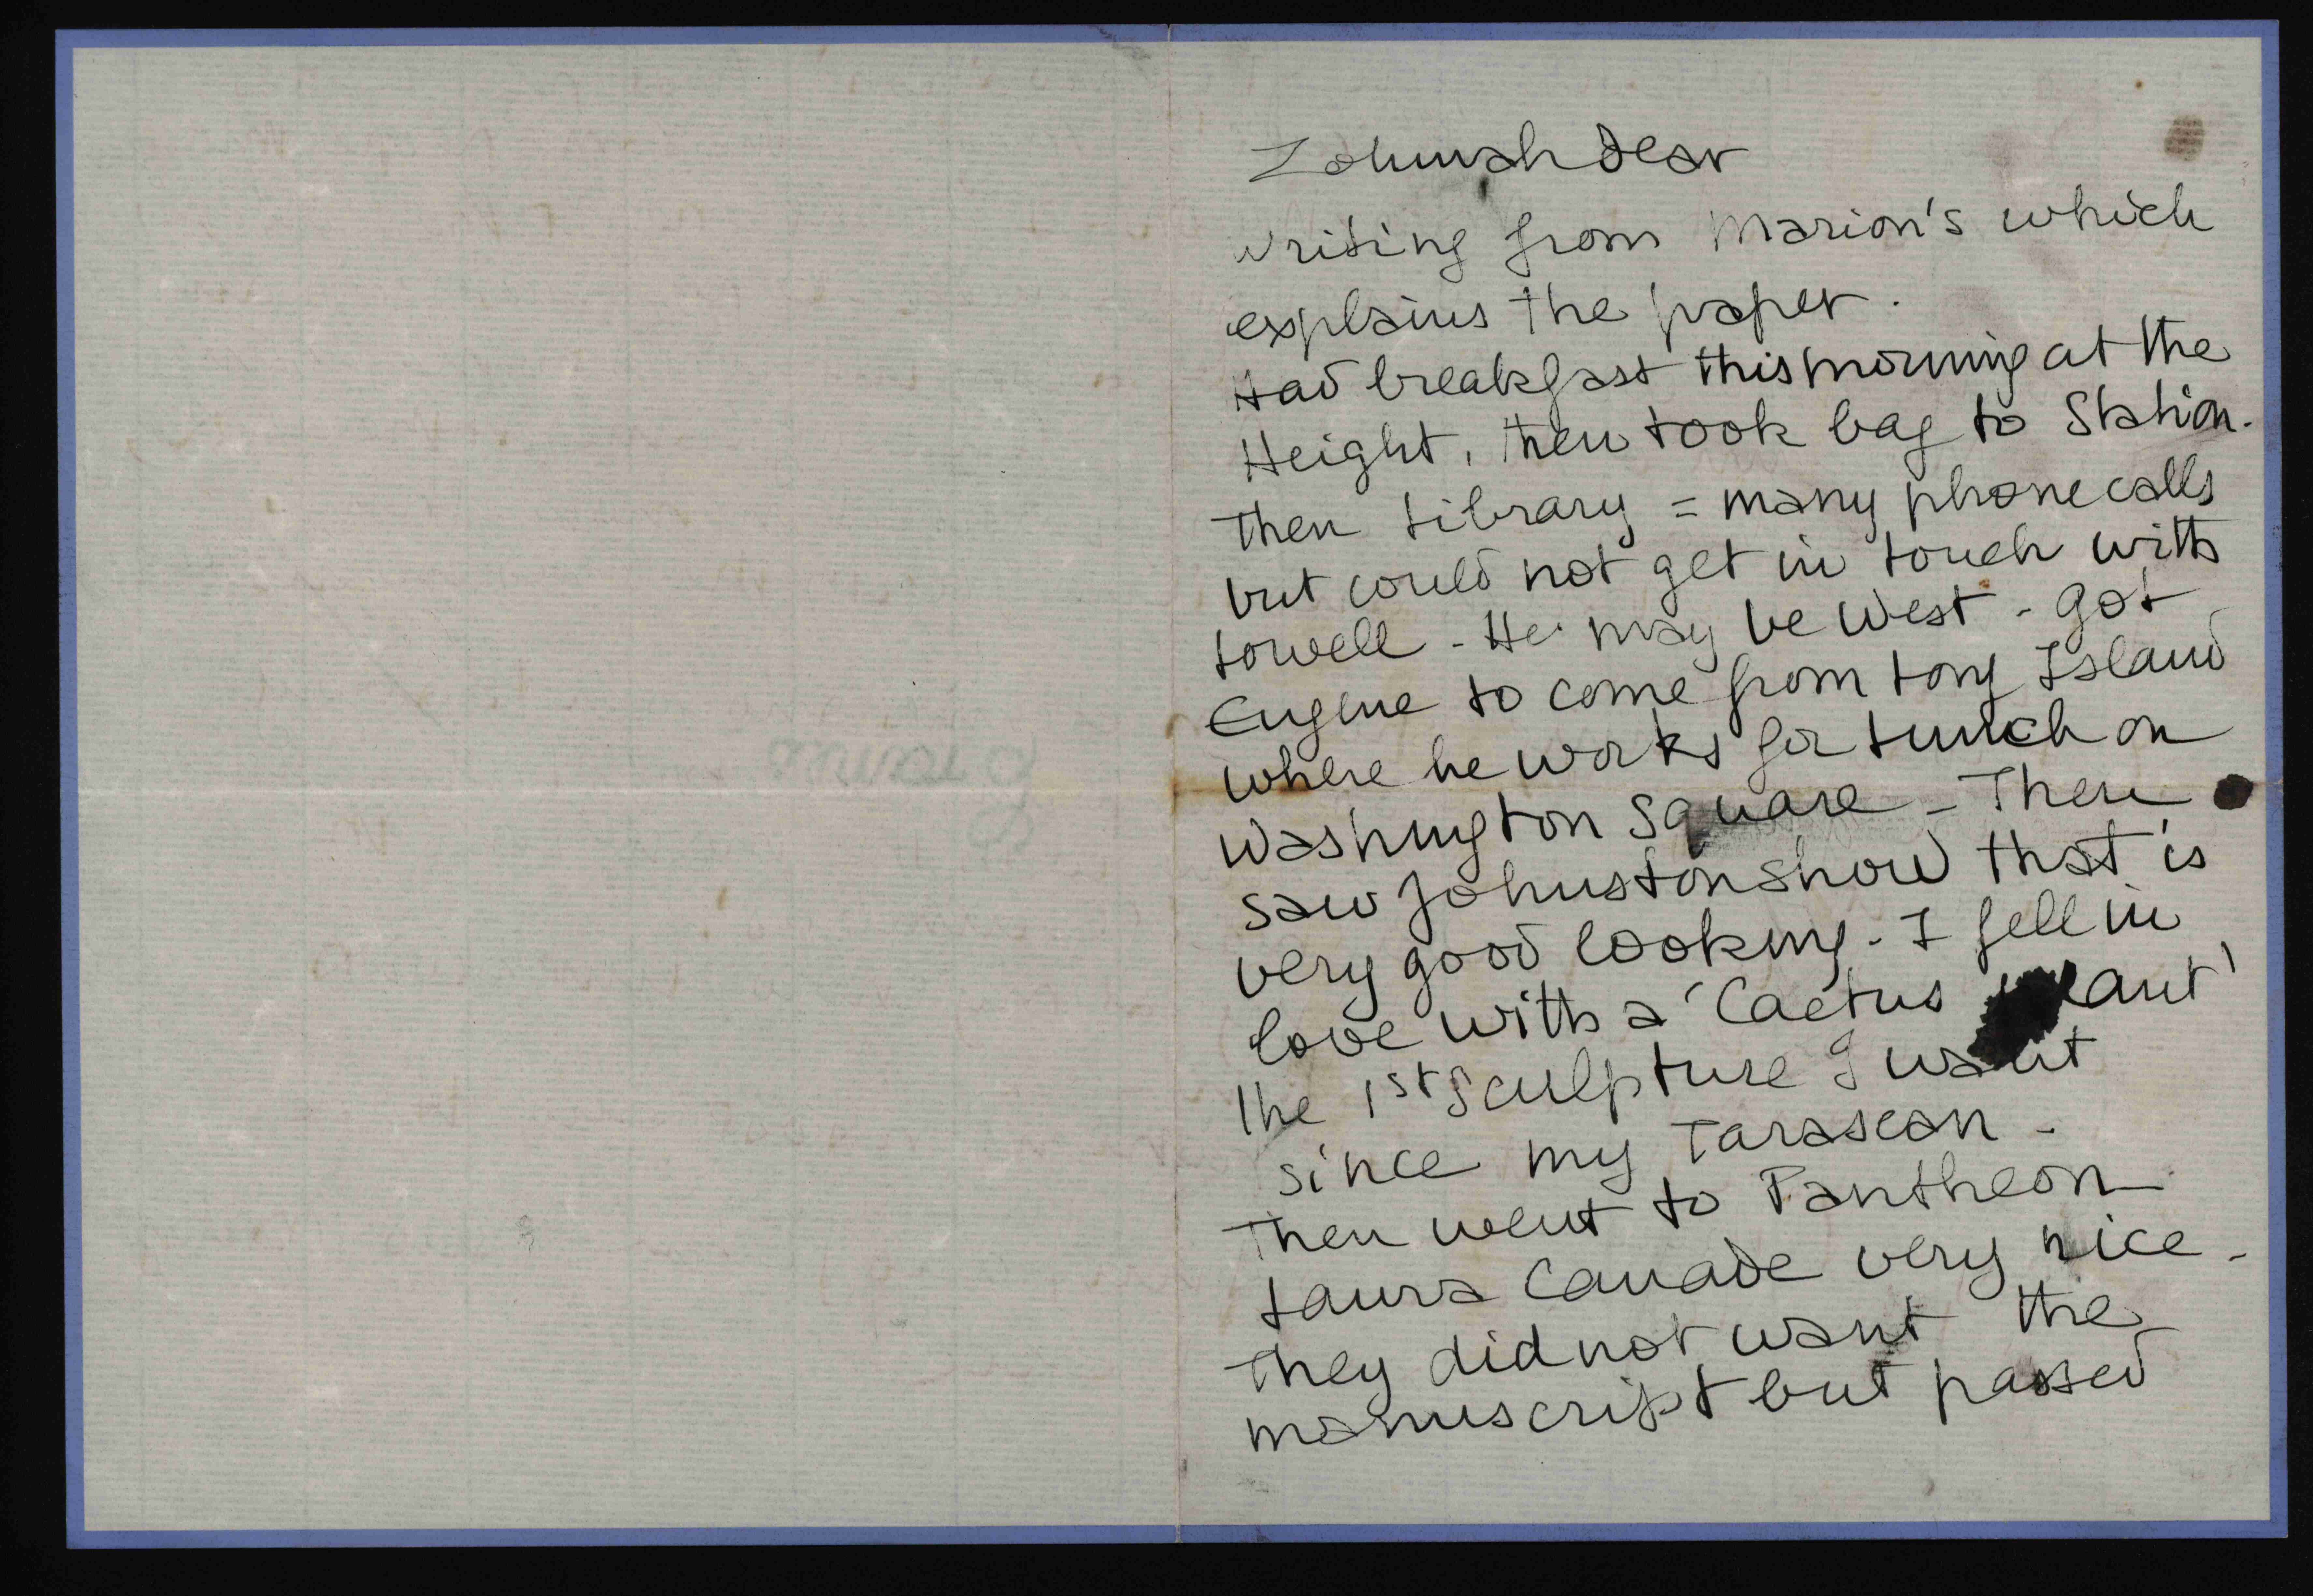 Zohmah dear
writing from Marion's which
explains the paper.
Had breakfast this morning at the
Height, then took bag to Station.
Then Library = many phone calls
but could not get in touch with
Lowell - He may be West - got
Eugene to come from Long Island
where he works for Lunch on
Washington Square - Then
saw Johnston show that is
very good looking - I fell in
love with a 'Cactus
the 1st sculpture I want
since my Tarascan -
Then went to Pantheon
Laura Canade very nice -
They did not want the
manuscript but passed